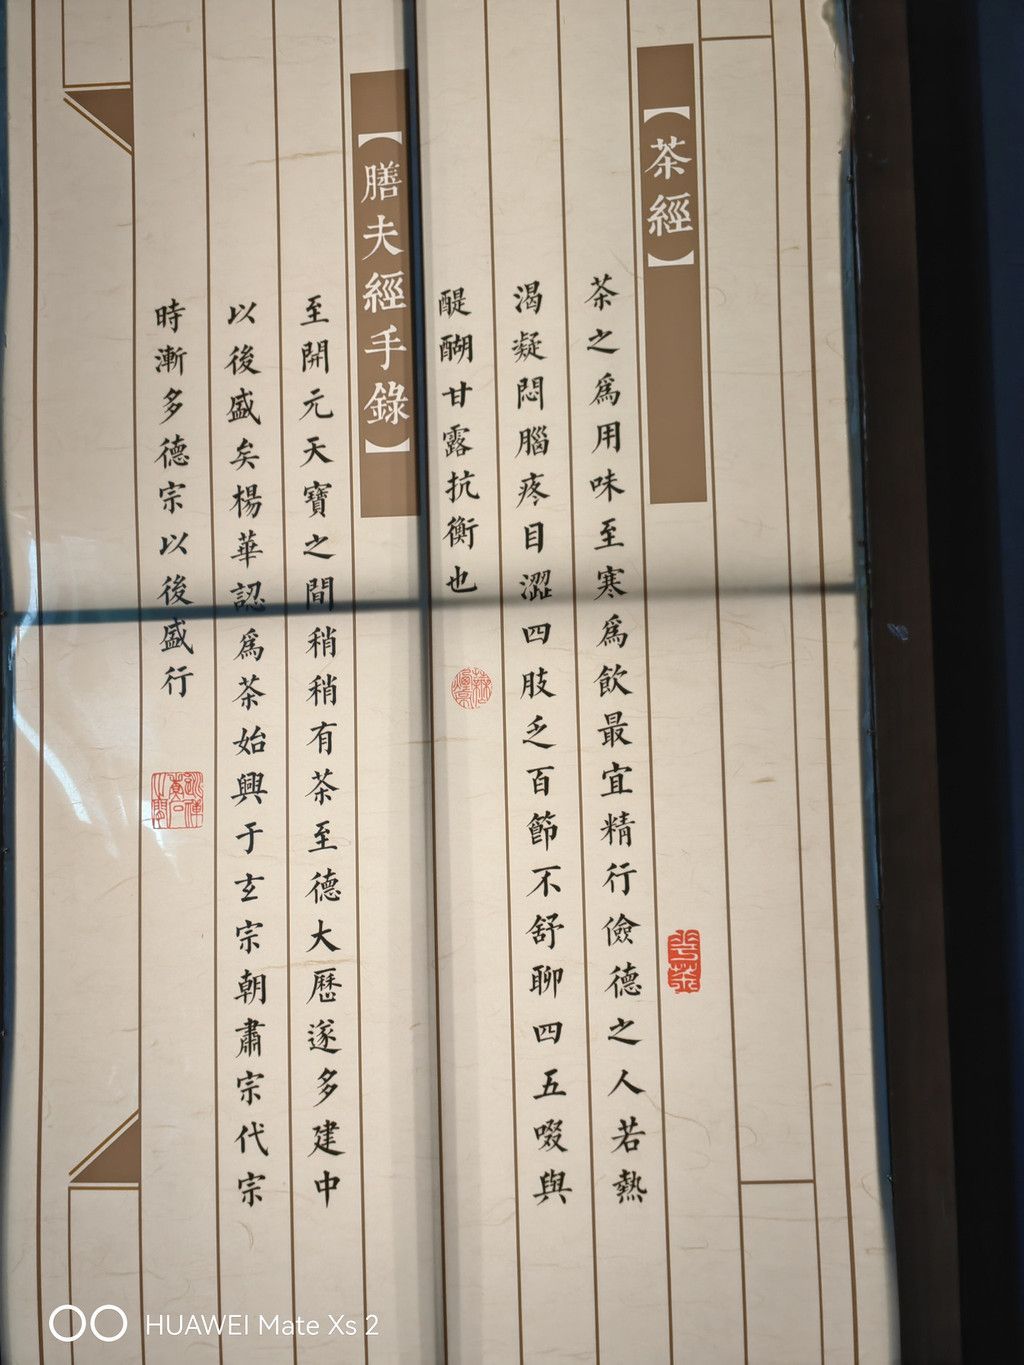 【茶經】
茶之爲用味至寒爲飲最宜精行儉德之人若熱
渴凝悶腦疼目澀四肢乏百節不舒聊四五啜與
醍醐甘露抗衡也
【膳夫經手錄】
至開元天寶之間稍稍有茶至德大歷遂多建中
以後盛矣楊華認爲茶始興于玄宗朝肅宗代宗
時漸多德宗以後盛行
HUAWEI Mate Xs 2